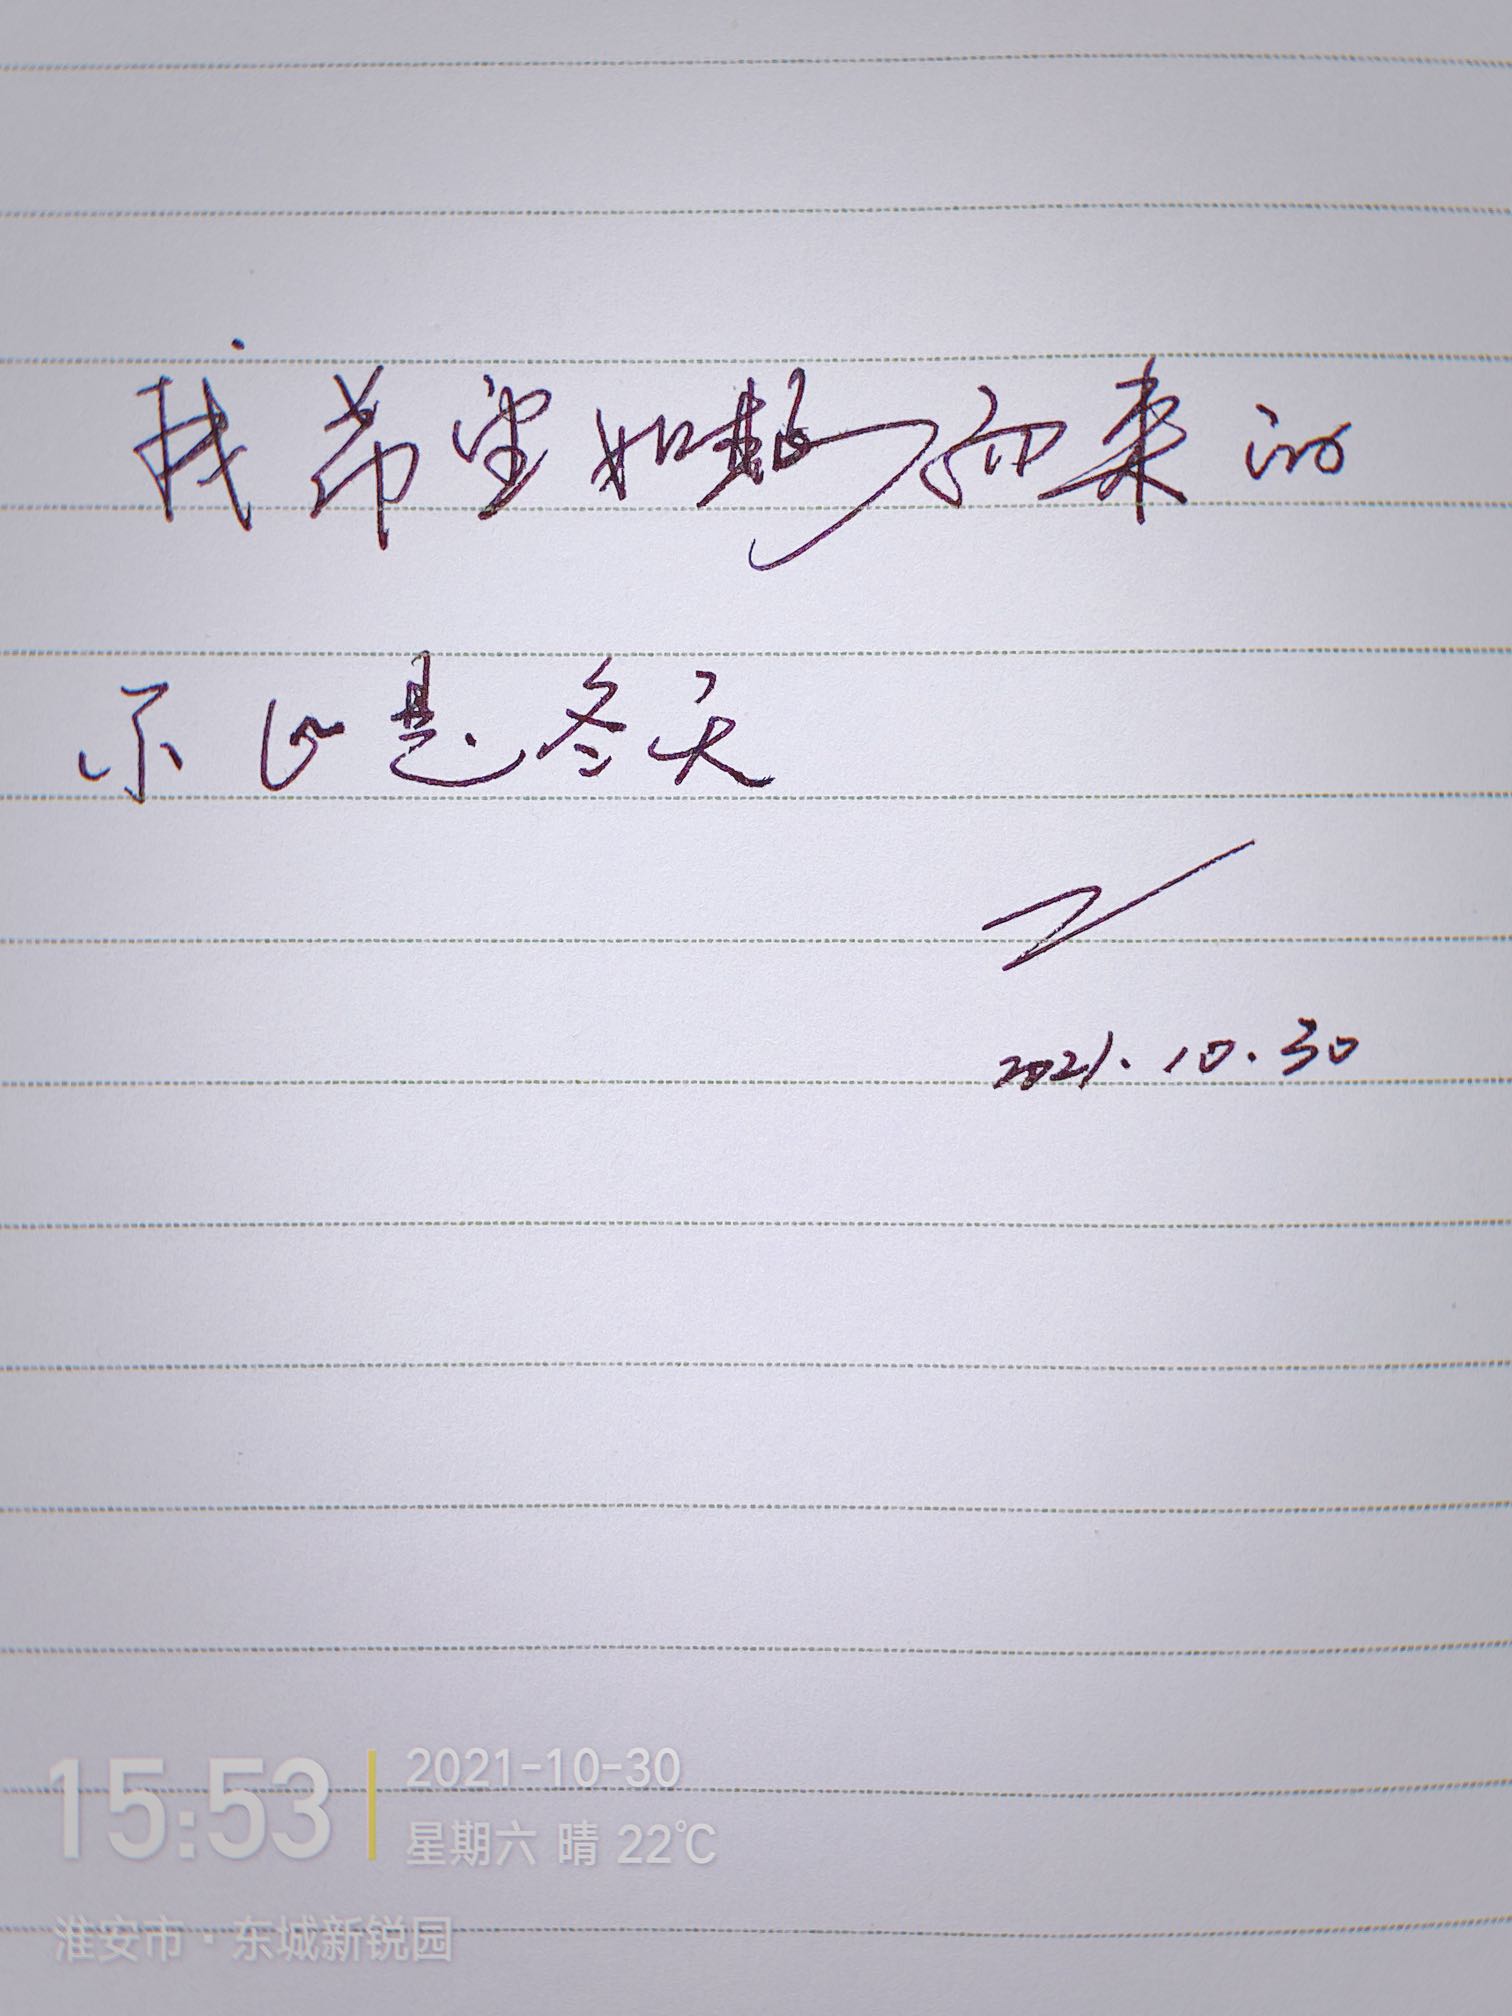 我希望如期而来的
不止是冬天
2021.10.30
15:53
2021-10-30
星期六 晴 22℃
淮安市·东城新锐园